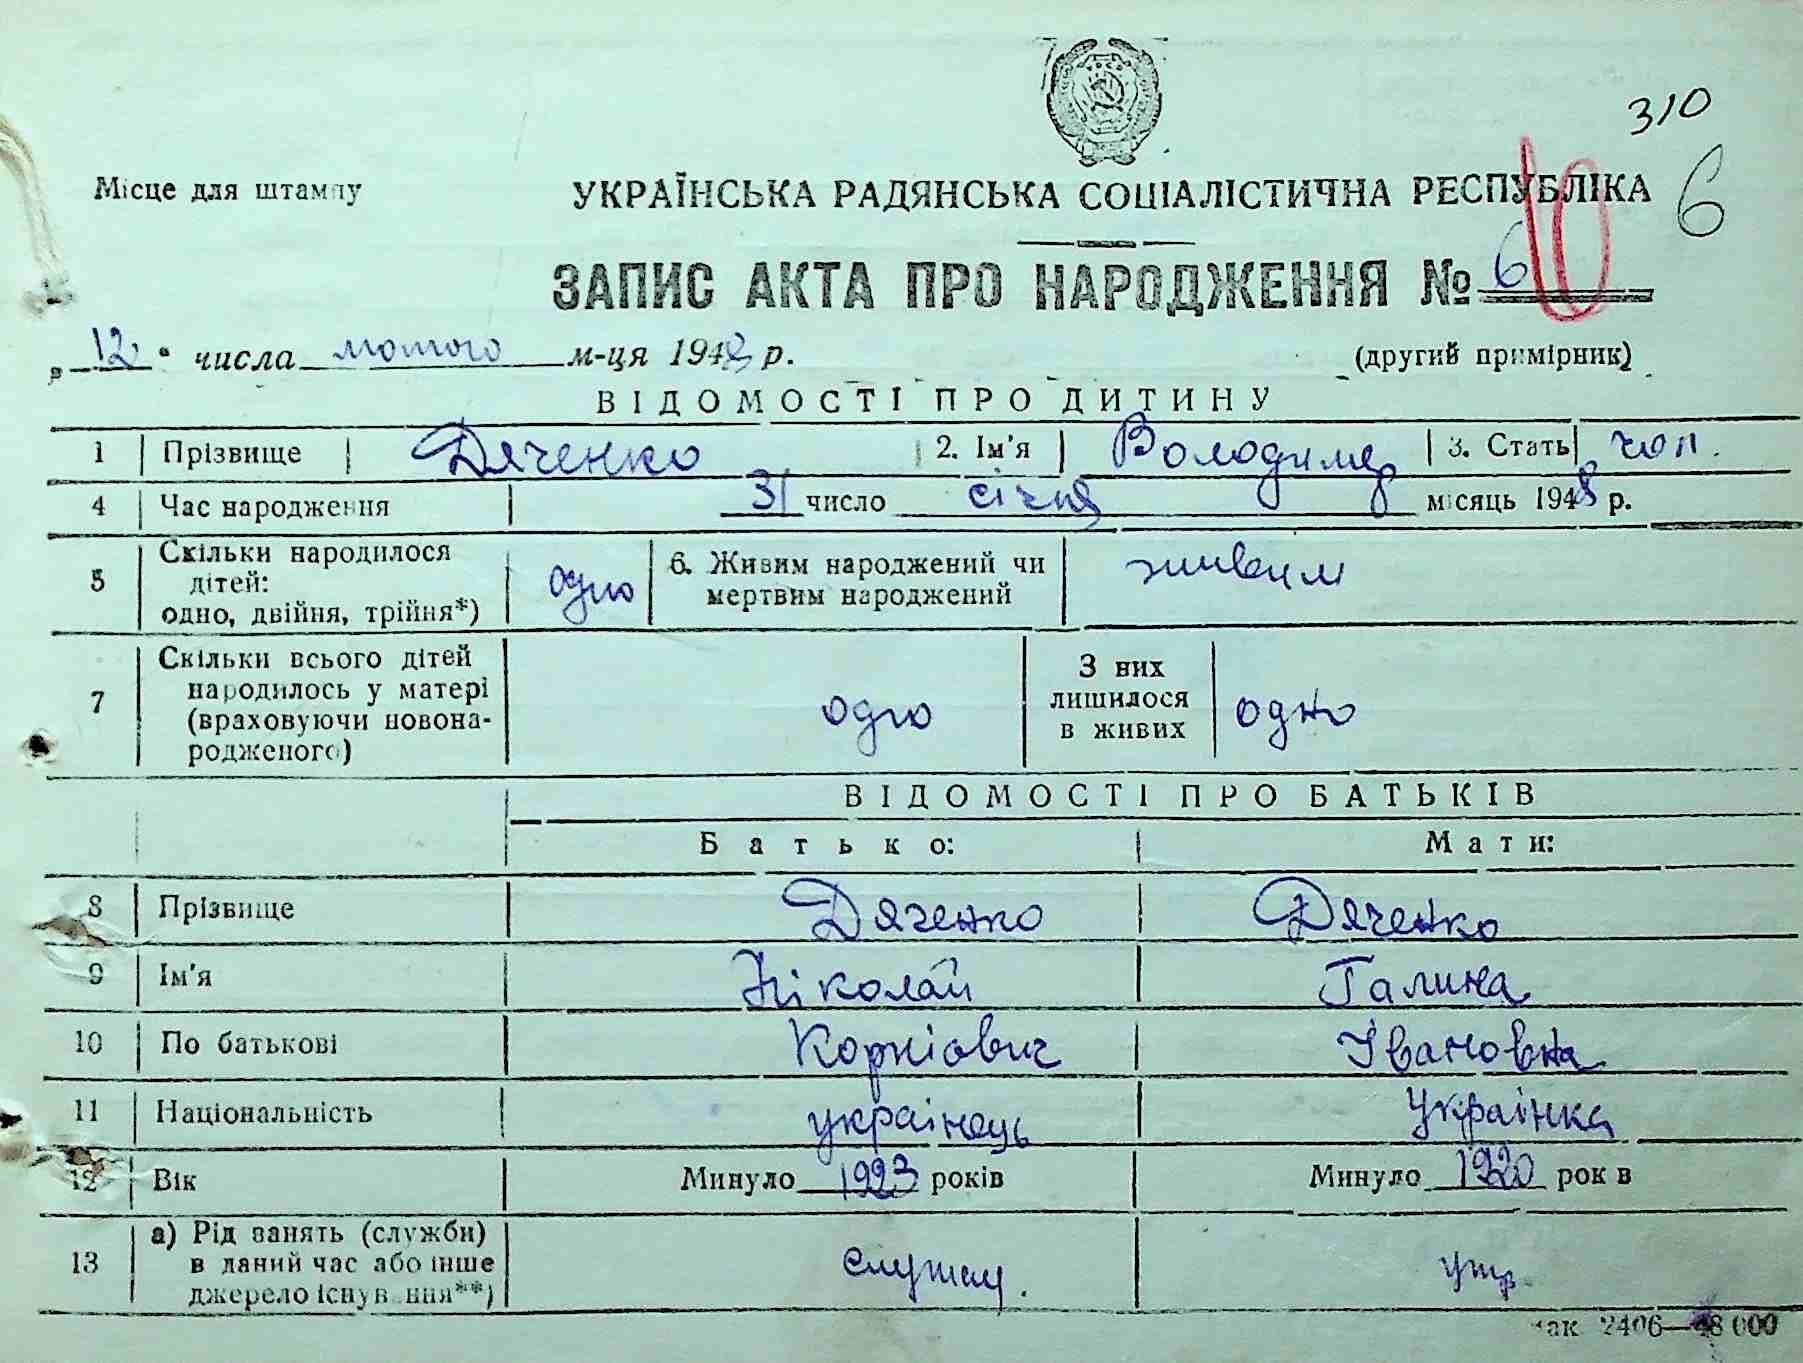 310
Місце для штампу УКРАЇНСЬКА РАДЯНСЬКА СОЦІАЛІСТИЧНА РЕСПУБЛІКА 6
ЗАПИС АКТА ПРО НАРОДЖЕННЯ № 6 10
12 числа лютого м-ця 1948 р. (другий примірник)
ВІДОМОСТІ ПРО ДИТИНУ
1 Прізвище Дяченко 2. Ім'я Володимер 3. Стать чол.
4 Час народження 31 число січня місяць 1948 р.
5 Скільки народилося дітей: одно, двійня, трійня*) одно 6. Живим народжений чи мертвим народжений живим
7 Скільки всього дітей народилось у матері (враховуючи новонародженого) одно З них лишилося в живих одно
ВІДОМОСТІ ПРО БАТЬКІВ
Батько: Мати:
8 Прізвище Дяченко Дяченко
9 Ім'я Ніколай Галина
10 По батькові Корніович Івановна
11 Національність украінець Украінка
12 Вік Минуло 1923 років Минуло 1920 рок в
13 а) Рід занять (служби) в даний час або інше джерело існування**) служащ. утр.
зак 2406—48 000